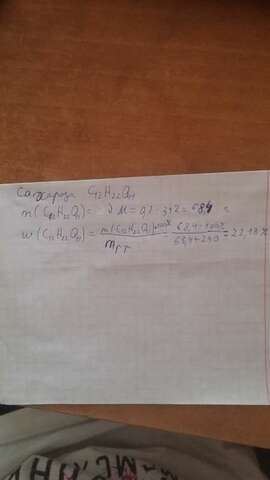 Сахароза C₁₂H₂₂O₁₁
m(C₁₂H₂₂O₁₁) = ν M = 0,2 · 342 = 68,4 г
w(C₁₂H₂₂O₁₁) = m(C₁₂H₂₂O₁₁)·100% / m р-т = 68,4·100% / 68,4+240 = 22,18%